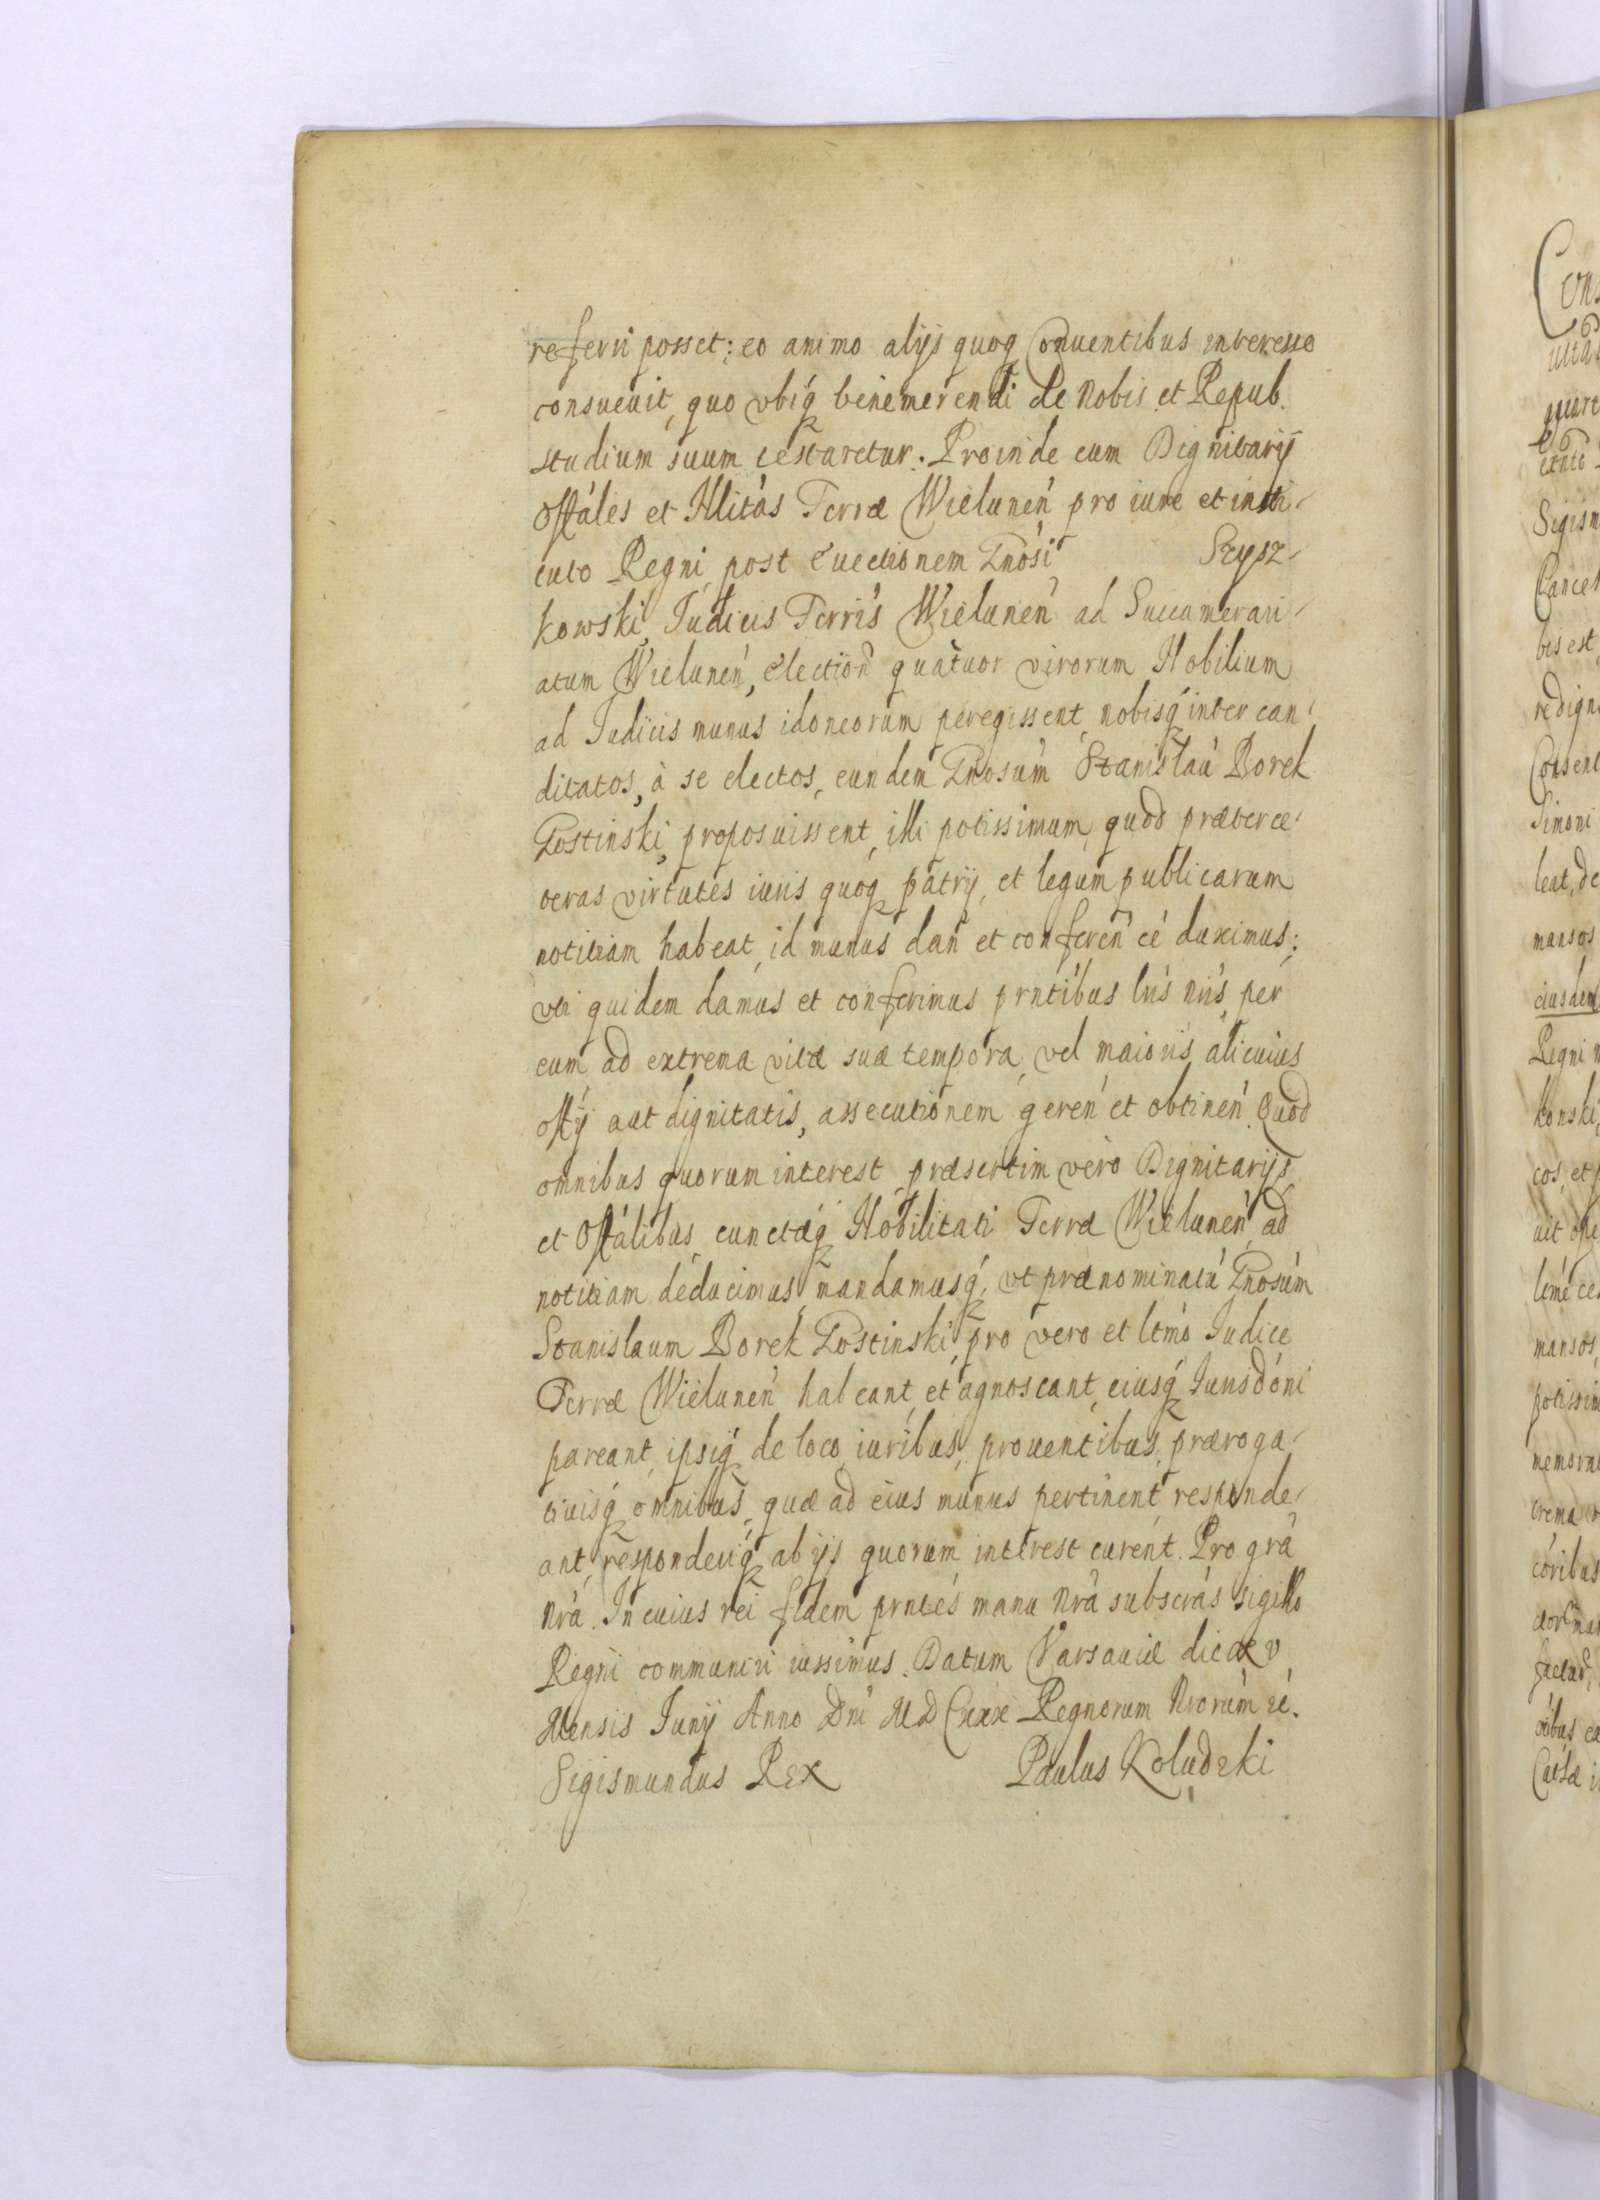 referri posset: eo animo alijs quoq Conventibus interesse
consuevit, quo vbiq benemerendi de Nobis et Repub.
studium suum testaretur. Proinde cum Dignitarij
Offáles et Nlitas Terræ Wielunen pro iure et insti-
tuto Regni, post Evectionem Gnosi Szysz-
kowski, Iudicis Terris Wielunen ad Succamerari-
atum Wielunen, Election quatuor virorum Nobilium
ad Iudicis munus idoneorum peregissent, nobisq inter can-
ditatos, à se electos, eundem Gnosum Stanislaú Borek
Gostinski, proposuissent, illi potissimum, quod præter ce-
teras virtutes iuris quoq patrij, et legum publicarum
notitiam habeat, id munus dan et conferen cé duximus;
vti quidem damus et conferimus prntibus lris nris, per
eum ad extrema vitæ suæ tempora, vel maioris alicuius
offij aut dignitatis, assecutionem geren et obtinen. Quod
omnibus quorum interest præsertim vero Dignitarijs,
et Offálibus, cunctæq Nobilitati Terræ Wielunen, ad
notitiam deducimus, mandamusq, vt prænominatú Gnosum
Stanislaum Borek Gostinski, pro vero et ltmo Iudice
Terræ Wielunen habeant, et agnoscant, eiusq Iurisdóni
pareant, ipsiq de loco, iuribus, proventibus, præroga-
tiuisq omnibus, quæ ad eius munus pertinent, responde-
ant, responderiq ab ijs quorum interest curent. Pro gra
nra. In cuius rei fidem prntes manu Nra subscras sigillo
Regni communiri iussimus. Datum Varsaviæ die xv
Mensis Iunij Anno Dni MDCxxx Regnorum Nrorum ré.
Sigismundus Rex Paulus Koludzki